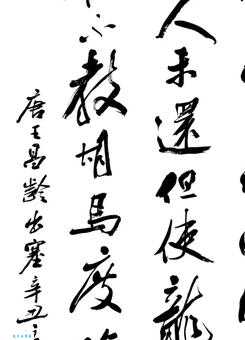 人未還但使龍
不教胡馬度
唐王昌齡出塞辛丑